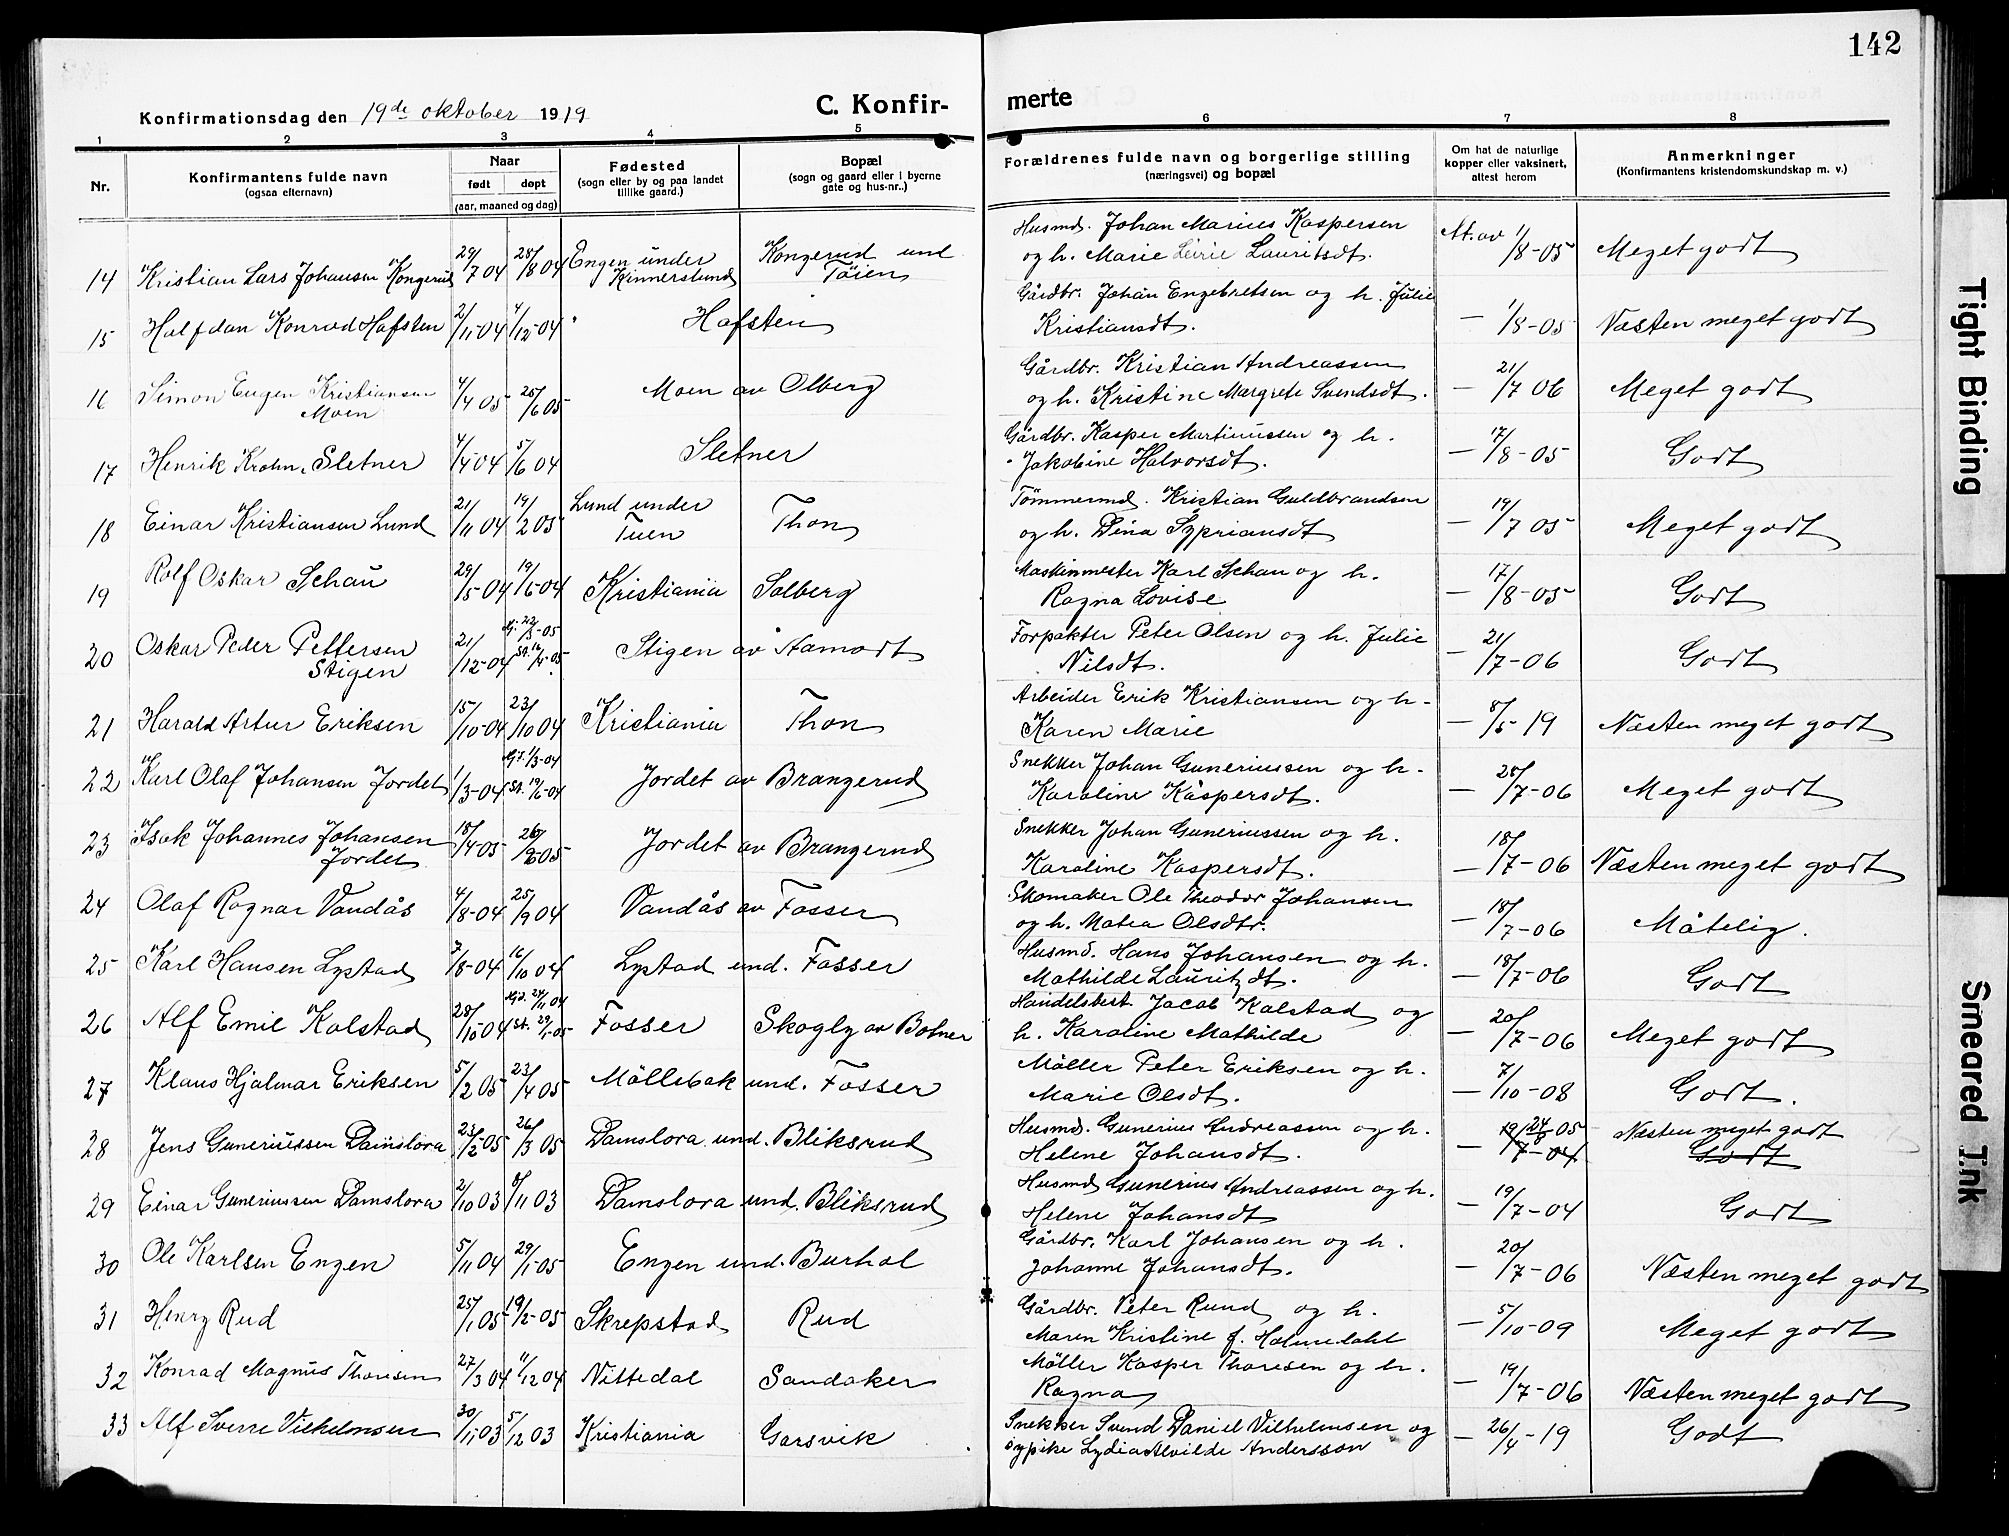 142
Konfirmationsdag den 19de oktober 1919
C. Konfir-
merte
1 2 3 4 5 6 7 8
Nr.
Konfirmantens fulde navn
(ogsaa efternavn)
Naar
født døpt
(aar, maaned og dag)
Fødested
(sogn eller by og paa landet
tillike gaard.)
Bopæl
(sogn og gaard eller i byerne
gate og hus-nr..)
Forældrenes fulde navn og borgerlige stilling
(næringsvei) og bopæl
Om hat de naturlige
kopper eller vaksinert,
attest herom
Anmerkninger
(Konfirmantens kristendomskundskap m. v.)
14 Kristian Lars Johansen Kongerud 29/7 04 28/8 04 Engen under Kinnerslund Kongerud und Töien Husmd. Johan Marius Kaspersen
og h. Marie Lauritsdt. At. av 1/8-05 Meget godt
15 Halfdan Konrad Hafsten 2/11-04 4/12-04 Hafsten Gårdbr. Johan Engebretsen og h. Julie
Kristiansdt. — 1/8-05 Næsten meget godt
16 Simon Eugen Kristiansen Moen 4/4 05 25/6 05 Moen av Olberg Gårdbr. Kristian Andreassen
og h. Kristine Margrete Svendsdt. — 21/7 06 Meget godt
17 Henrik Krohn Sletner 4/4-04 5/6 04 Sletner Gårdbr. Kasper Martinussen og h.
Jakobine Halvorsdt. — 17/8-05 Godt
18 Einar Kristiansen Lund 21/11 04 19/2 05 Lund under Tuen Thon Tömmermd. Kristian Guldbrandsen
og h. Dina Sypriansdt — 19/7 05 Meget godt
19 Rolf Oskar Schau 29/5-04 19/6-04 Kristiania Solberg Maskinmester Karl Schau og h.
Ragna Lovise — 17/8-05 Godt
20 Oskar Peder Pettersen Stigen 21/12-04 Stigen av Aamodt Forpakter Peter Olsen og h. Julie
Nilsdt. — 21/7-06 Godt
21 Harald Artur Eriksen 15/10-04 23/10 04 Kristiania Thon Arbeider Erik Kristiansen og h.
Karen Marie — 8/5 19 Næsten meget godt
22 Karl Olaf Johansen Jordet 1/3-04 Hj. 1/3-04 St. 19/6-04 Jordet av Brangerud Snekker Johan Guneriussen og h.
Karoline Kaspersdt. — 28/7-06 Meget godt
23 Isak Johannes Johansen Jordet 18/4-05 Jordet av Brangerud Snekker Johan Guneriussen og h.
Karoline Kaspersdt. — 18/7-06 Næsten meget godt
24 Olaf Ragnar Vandås 4/8-04 25/9 04 Vandås av Fosser Skomaker Ole Theodor Johansen
og h. Matea Olsdtr. — 18/7-06 Måtelig.
25 Karl Hansen Lystad 7/8-04 16/10 04 Lystad und. Fosser Husmd. Hans Johansen og h.
Mathilde Lauritzdt. — 18/7-06 Godt
26 Alf Emil Kalstad 28/10 04 Hj. 24/11 04 St. 29/1-05 Fosser Skogly av Botner Handelsbest. Jacob Kalstad og
h. Karoline Mathilde — 20/7-06 Meget godt
27 Klaus Hjalmar Eriksen 5/2 05 23/4 05 Möllebak und. Fosser Möller Peter Eriksen og h.
Marie Olsdt. — 7/10-08 Godt.
28 Jens Guneriussen Damslora 23/2-05 26/3 05 Damslora und. Bliksrud Husmd. Gunerius Andreassen og h.
Helene Johansdt. — 24/8-05 Næsten meget godt
Godt
29 Einar Guneriussen Damslora 2/10 03 8/11 03 Damslora und. Bliksrud Husmd Gunerius Andreassen og h.
Helene Johansdt — 19/7-04 Godt
30 Ole Karlsen Engen 5/11 04 29/1-05 Engen und. Burhol Gårdbr. Karl Johansen og h.
Johanne Johansdt. — 20/7-06 Næsten meget godt
31 Henry Rud 25/1 05 19/2-05 Skrepstad Rud Gårdbr. Peter Rund og h.
Maren Kristine f. — 5/10-09 Meget godt
32 Konrad Magnus Thoresen 27/3 04 11/12 04 Nittedal Sandaker Möller Kasper Thoresen og h.
Ragna — 19/7-06 Næsten meget godt
33 Alf Sverre Vilhelmsen 30/11 03 5/12 03 Kristiania Garsvik Snekker Svend Daniel Vilhelmsen og
sypike Lydia Alvilde Andersson — 26/4-19 Godt
Tight Binding
Smeared Ink